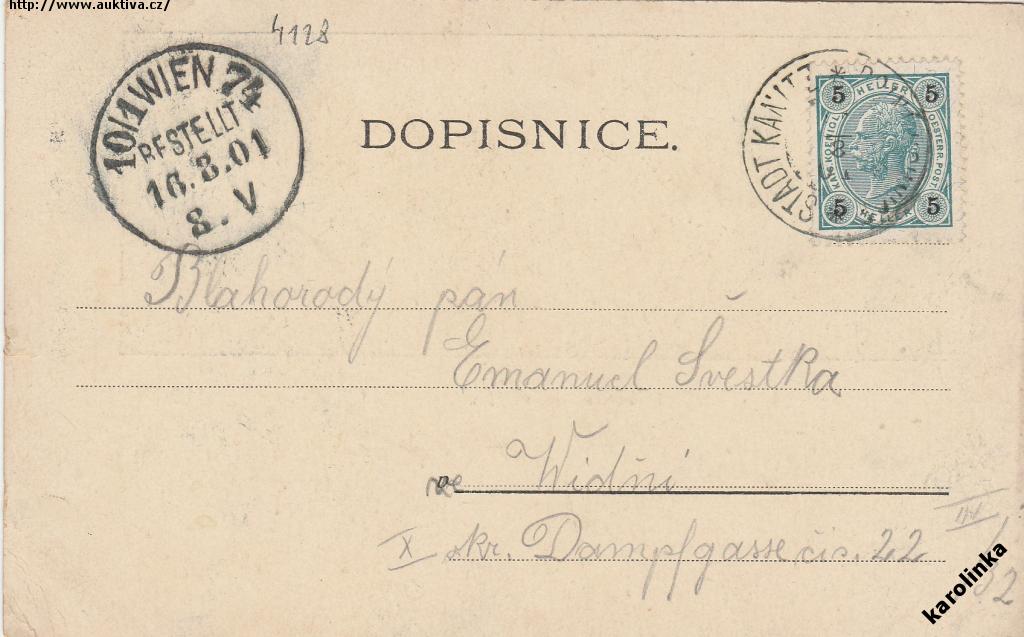 http://www.auktiva.cz/
4128
10/1 WIEN 74
BESTELLT
16.8.01
8. V
DOPISNICE.
STADT KANITZ
5 HELLER 5
KAIS. KOENIGL. OESTERR. POST
5 HELLER 5
Blahorodý pán
Emanuel Švestka
ve Widni
X skr. Dampfgasse čis. 22
karolinka